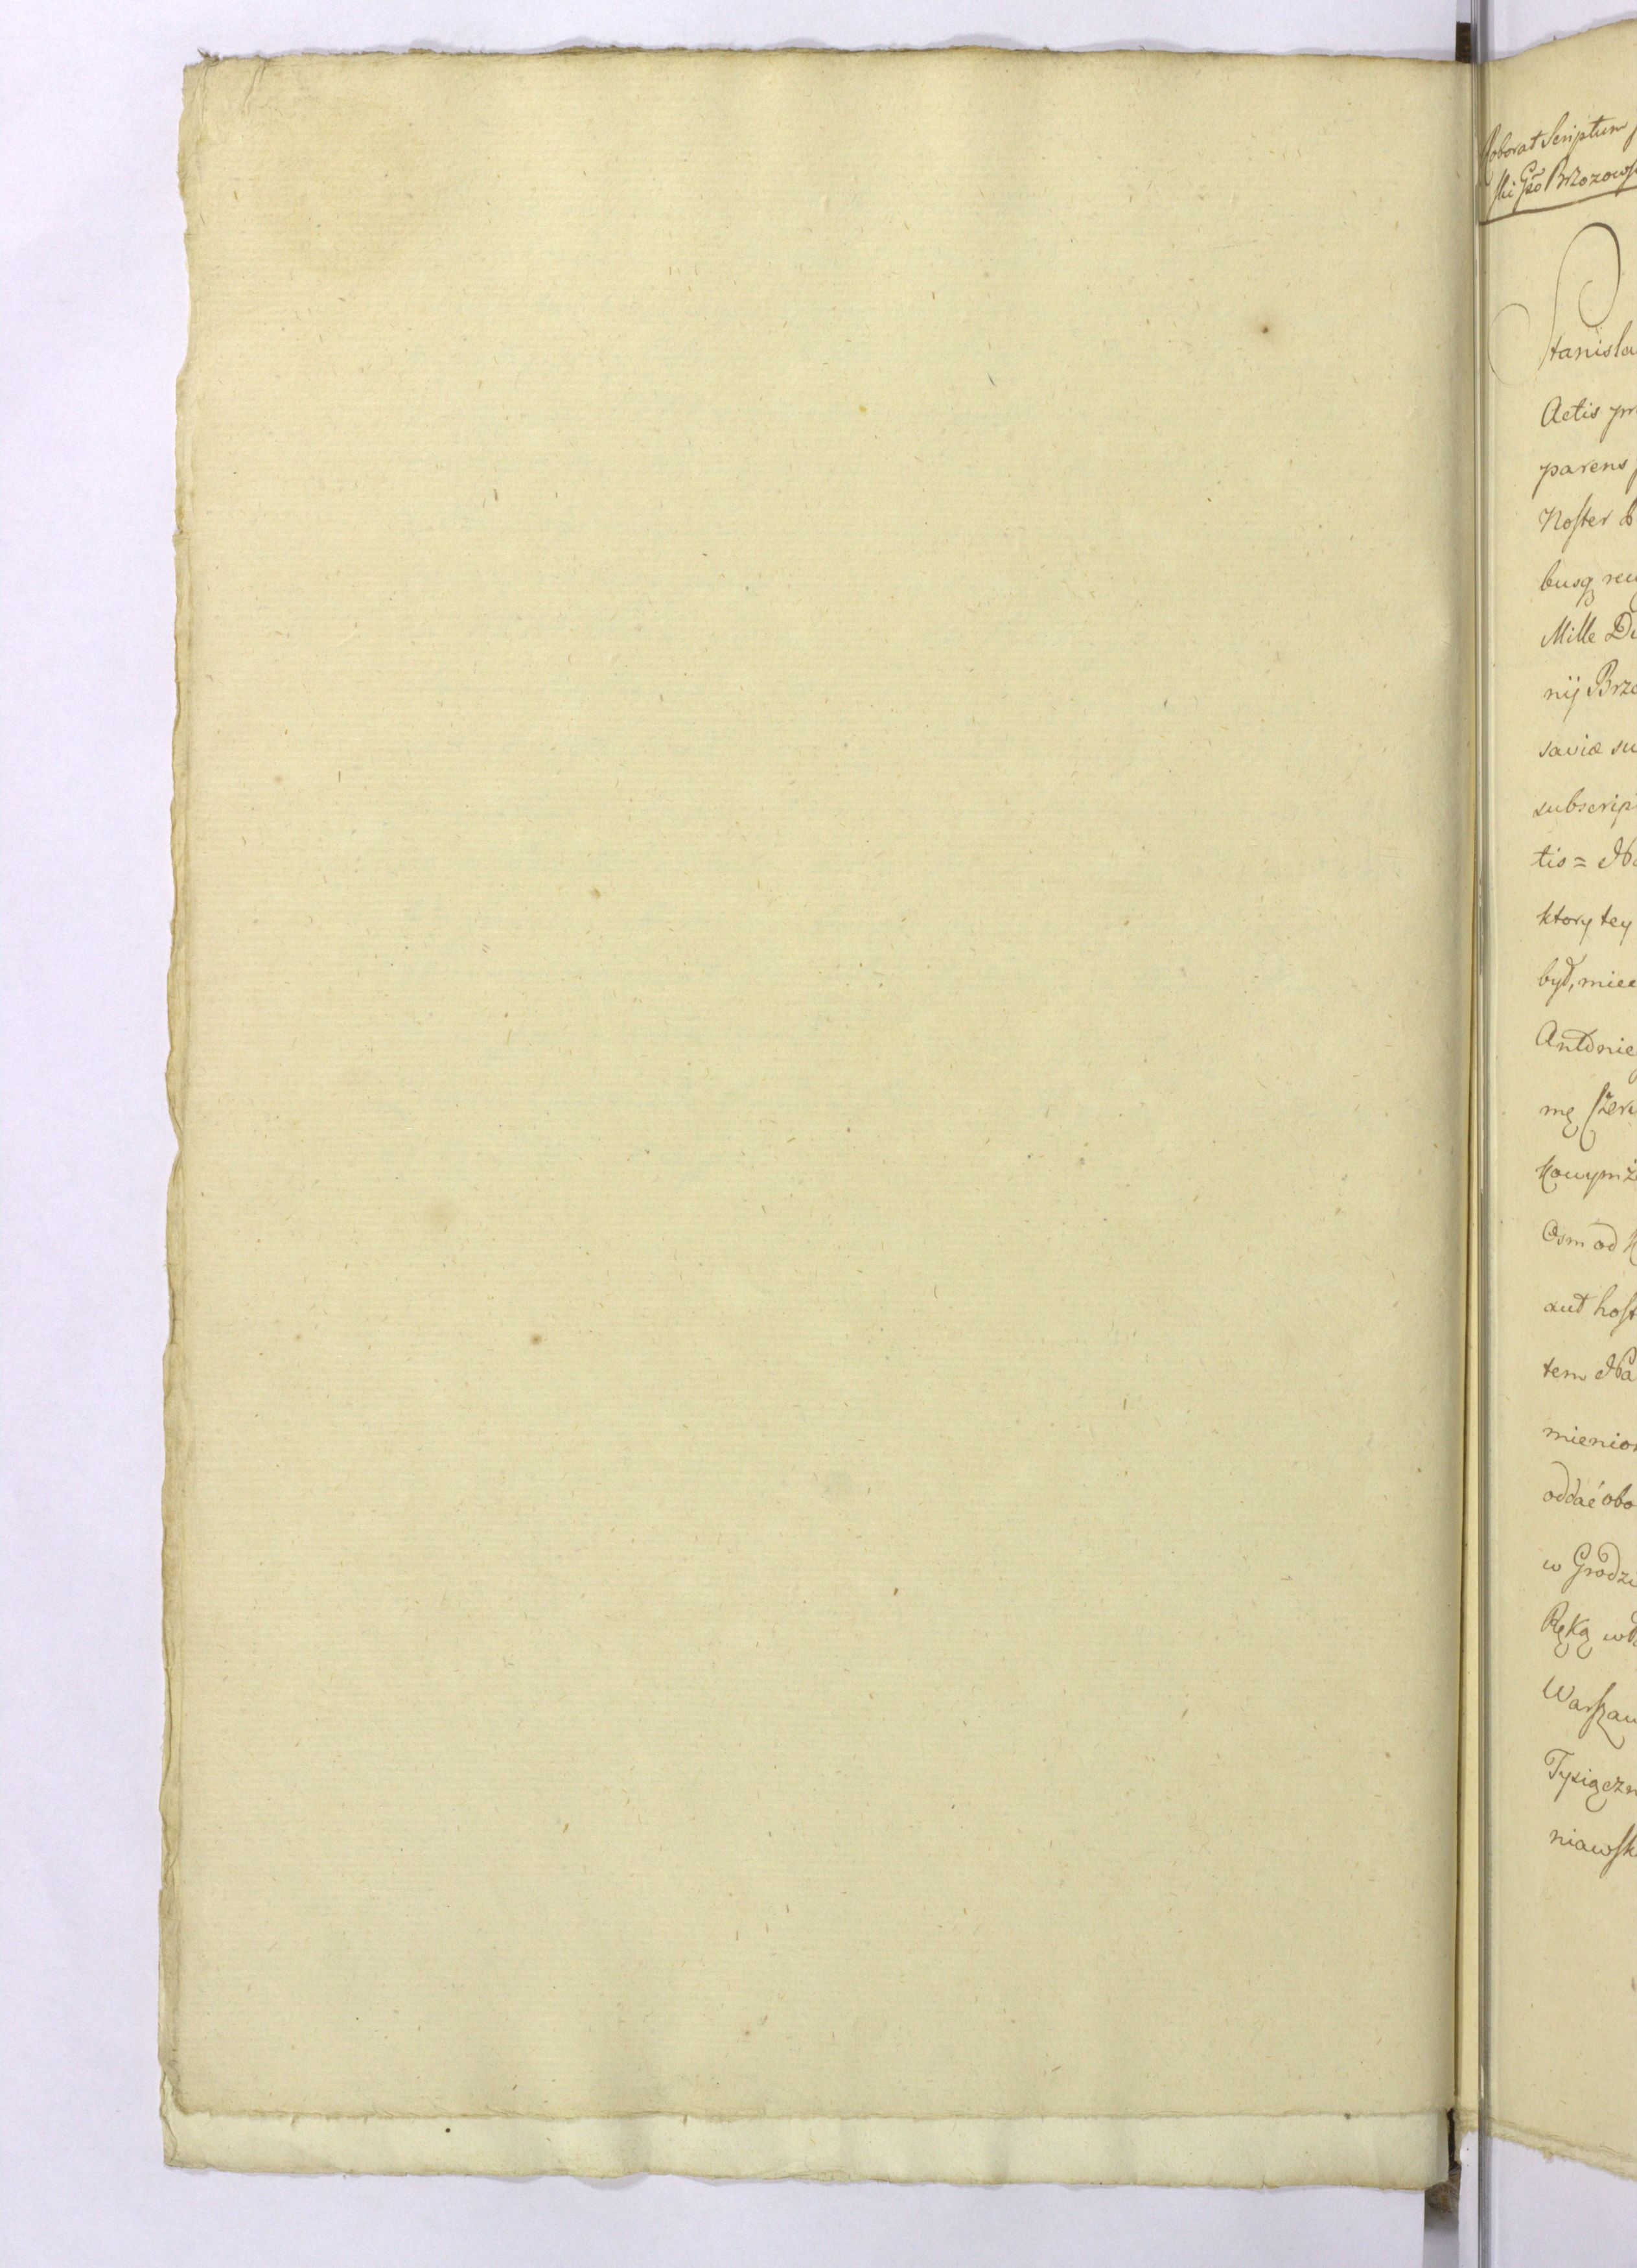 Roborat Scriptum
ski Gso Brzozows
Stanisla
Actis pr
parens
Noster
busq
Mille Du
nij Brzo
saviæ su
subscrip
tis = Na
ktory tey
był, miee
Antonie
mę Szer
Osm od
aut host
tem Na
mienion
oddać obo
w Grodzi
Ręką wł
Warszaw
Tysiączn
niawsk